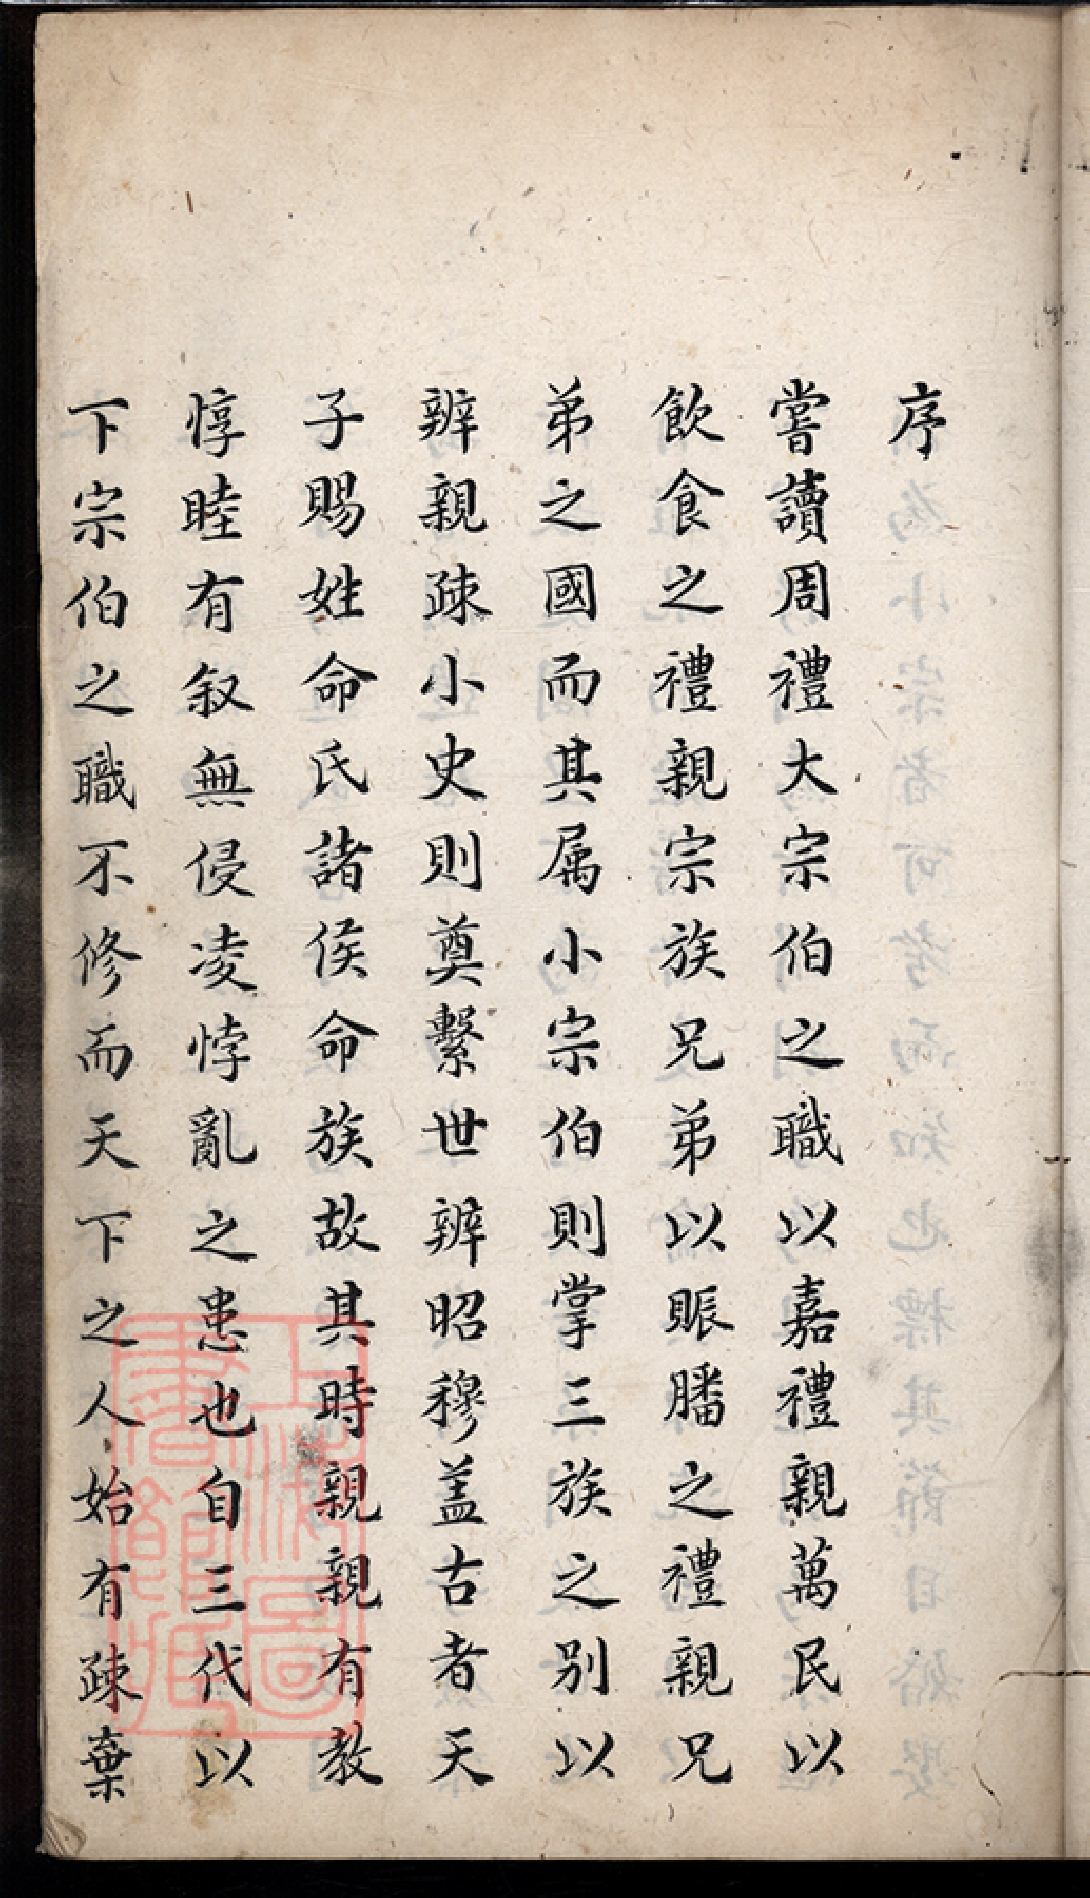 序
嘗讀周禮大宗伯之職以嘉禮親萬民以
飲食之禮親宗族兄弟以賑膰之禮親兄
弟之國而其属小宗伯則掌三族之别以
辨親疎小史則奠繫世辨昭穆盖古者天
子賜姓命氏諸侯命族故其時親親有教
惇睦有叙無侵凌悖亂之患也自三代以
下宗伯之職不修而天下之人始有疎棄
上海圖書館藏